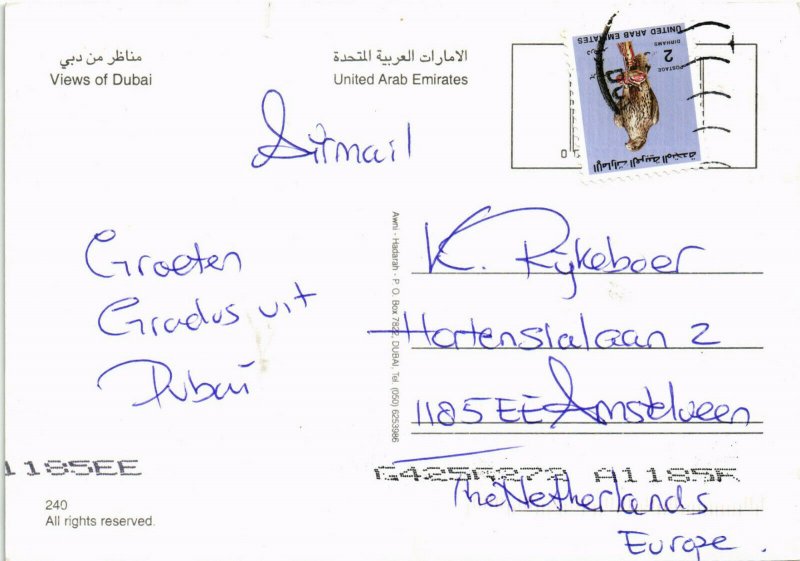 مناظر من دبي
Views of Dubai
الامارات العربية المتحدة
United Arab Emirates
UNITED ARAB EMIRATES
2
DIRHAMS
POSTAGE
الإمارات العربية المتحدة
Airmail
Groeten
Gradus uit
Dubai
Awni - Hadarah - P. O. Box 7822, DUBAI, Tel. (050) 6253986
K. Rijkeboer
Hortensialaan 2
1185EE Amstelveen
The Netherlands
Europe.
1185EE
A1185E
240
All rights reserved.